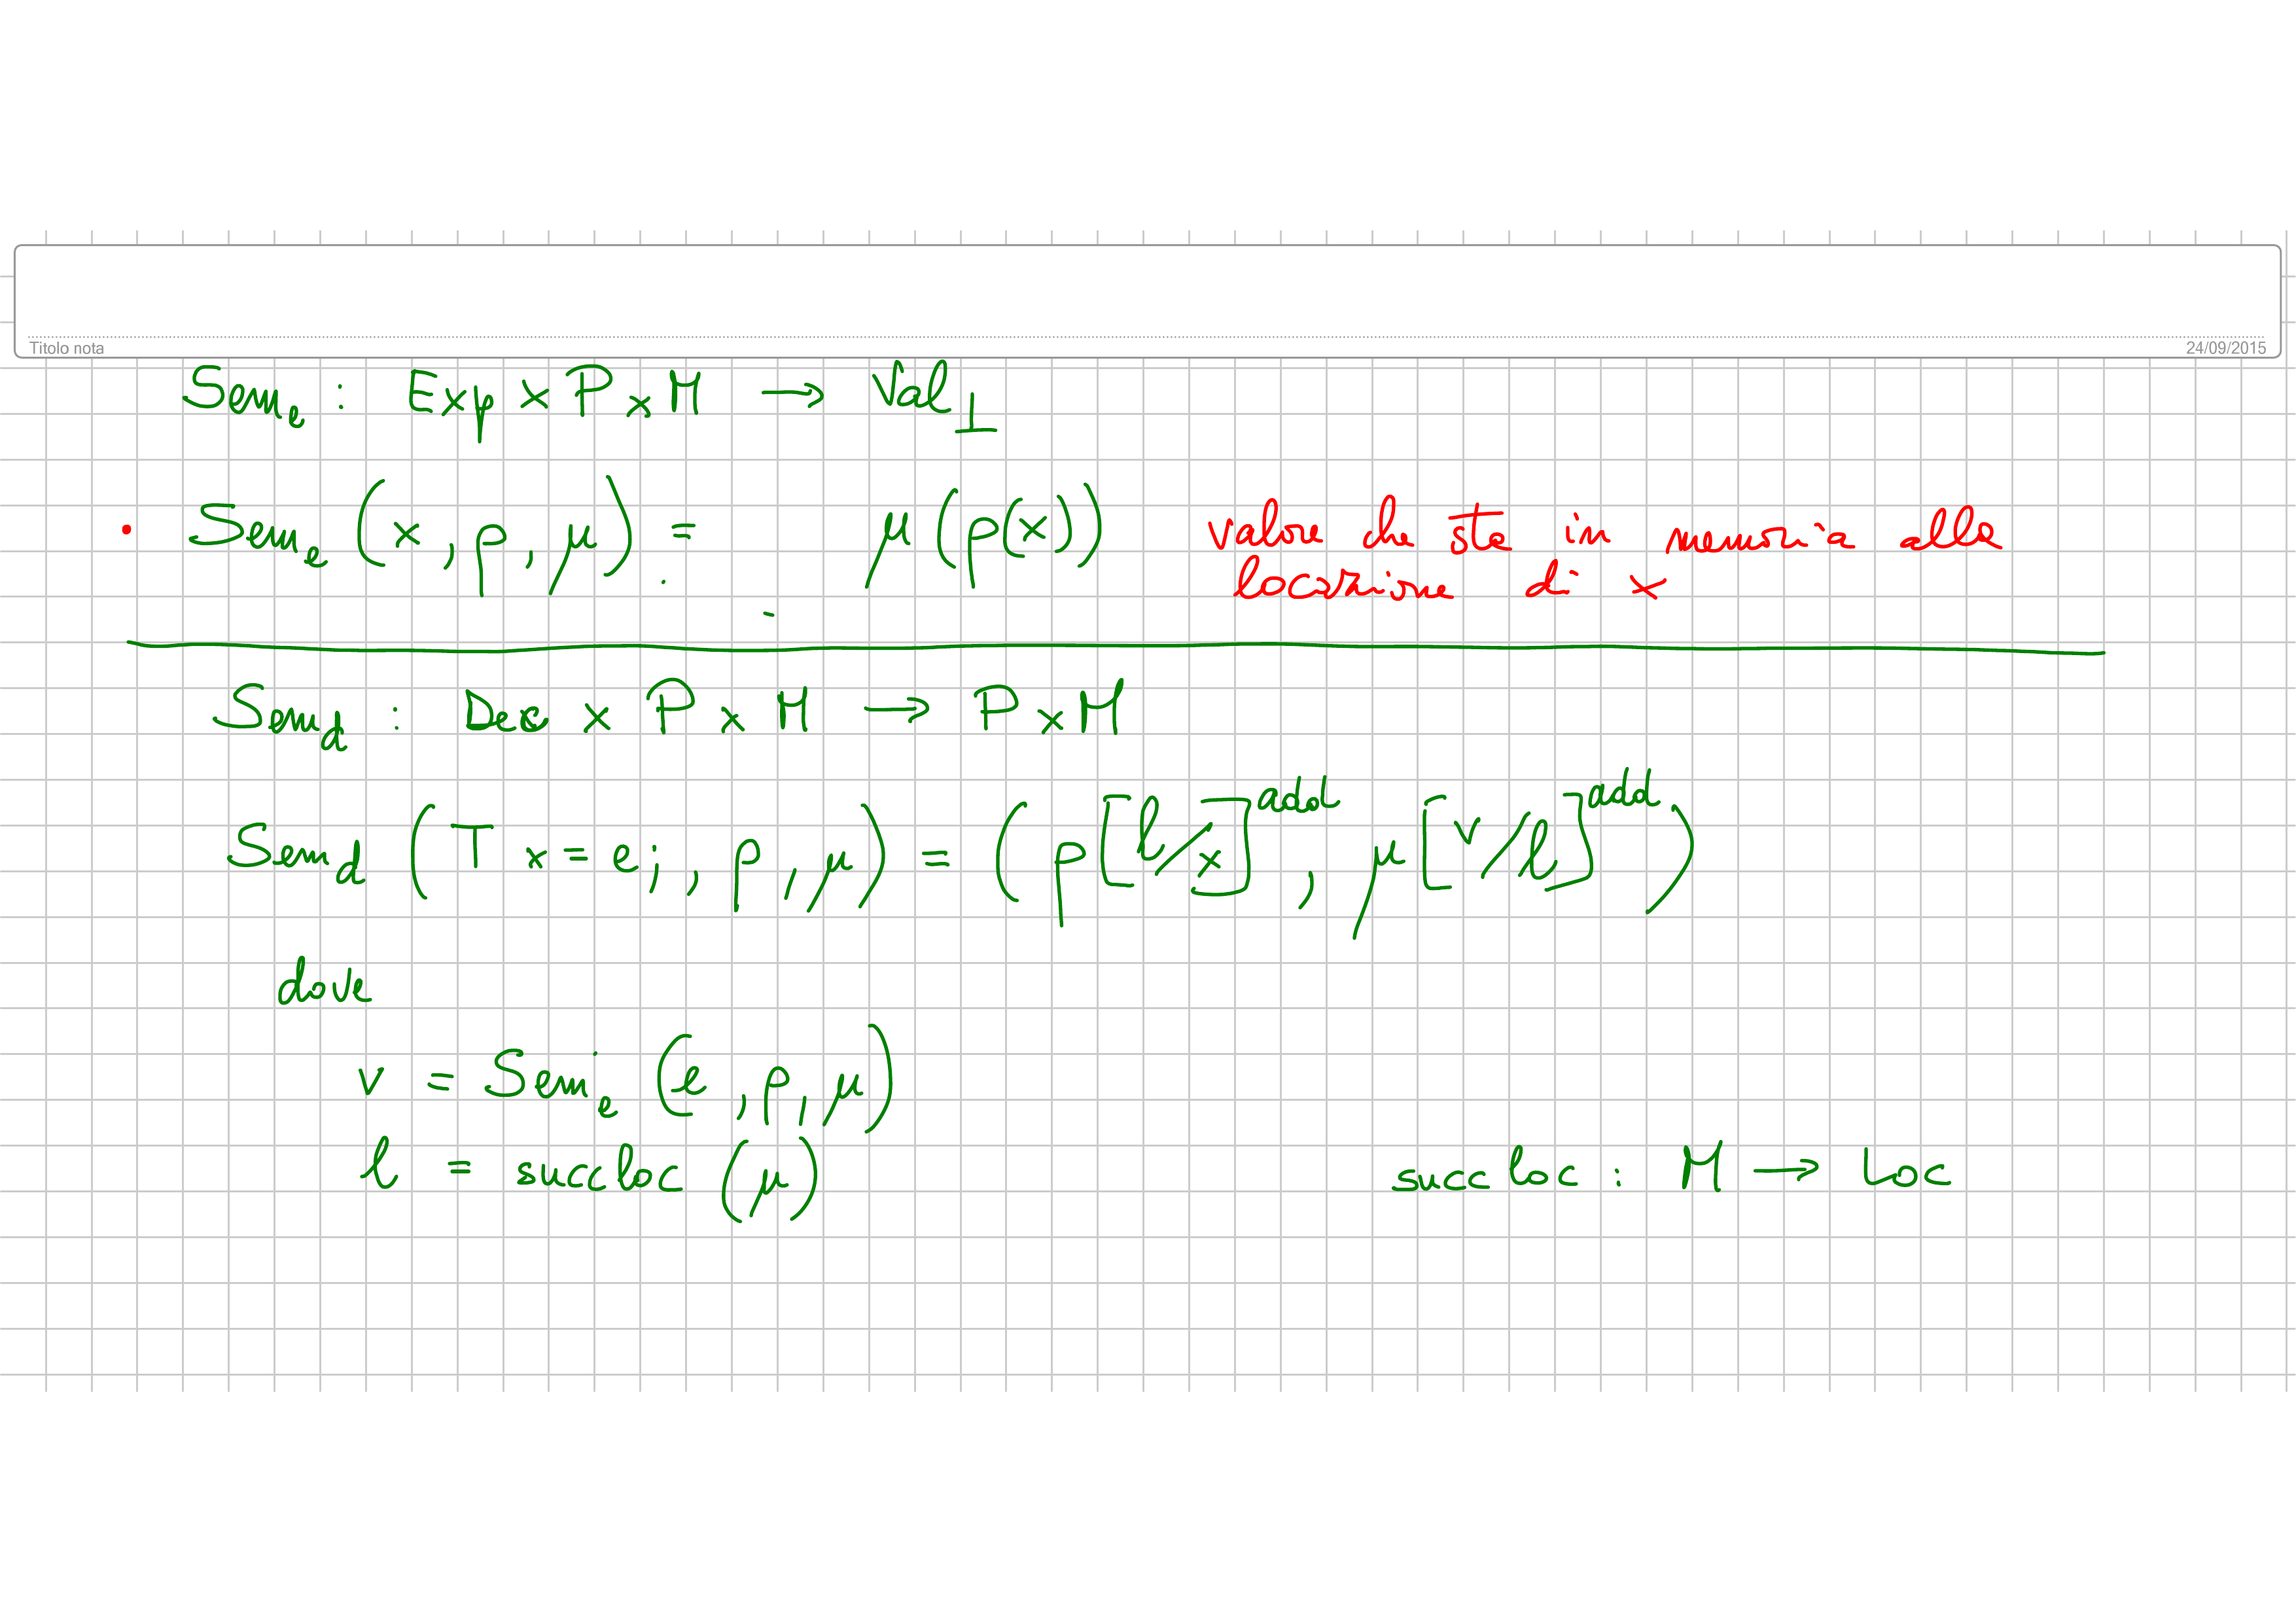 Titolo nota 24/09/2015
Sem_e : Exp x P x M → Val_⊥
• Sem_e (x, ρ, μ) = μ(ρ(x)) valore che sta in memoria alla
locazione di x
Sem_d : Dec x P x M → P x M
Sem_d (T x = e; , ρ, μ) = (ρ[l/x]^add, μ[v/l]^add)
dove
v = Sem_e (e, ρ, μ)
l = succloc (μ) succloc : M → Loc